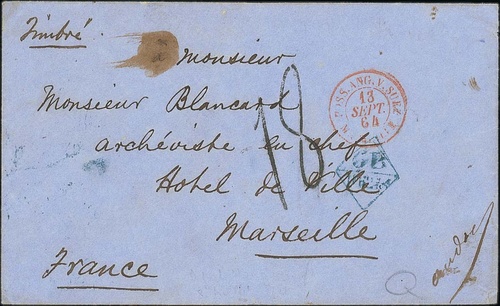 Timbré
Monsieur
Monsieur Blancard
archéviste en chef
Hotel de Ville
Marseille
France
18
POSS.ANG.V.SUEZ
13
SEPT.
64